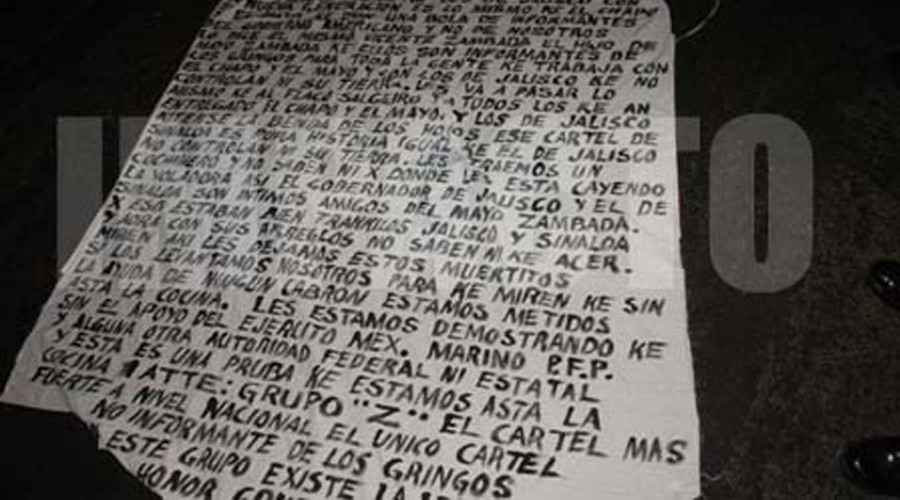 NUEVA GENERACION ES LO MISMO KE EL CHAPO
UNA BOLA DE INFORMANTES
GOBIERNO AMERICANO Y NO DE NOSOTROS
MISMO VICENTE ZAMBADA EL HIJO DE
MAYO ZAMBADA KE ELLOS SON INFORMANTES DE
LOS GRINGOS PARA TODA LA GENTE KE TRABAJA CON
EL CHAPO Y EL MAYO Y CON LOS DE JALISCO KE NO
CONTROLAN NI SU TIERRA. LES VA A PASAR LO
MISMO KE AL FLACO SALGEIRO Y A TODOS LOS KE AN
ENTREGADO EL CHAPO Y EL MAYO. Y LOS DE JALISCO
KITENSE LA BENDA DE LOS HOJOS ESE CARTEL DE
SINALOA ES PURA HISTORIA IGUAL KE EL DE JALISCO
NO CONTROLAN NI SU TIERRA. LES TRAEMOS UN
COCHINERO Y NO SABEN NI X DONDE LES ESTA CAYENDO
LA VOLADORA ASI EL GOBERNADOR DE JALISCO Y EL DE
SINALOA SON INTIMOS AMIGOS DEL MAYO ZAMBADA.
X ESO ESTABAN BIEN TRANKILOS JALISCO Y SINALOA
Y AORA CON SUS ARREGLOS NO SABEN NI KE ACER.
MIREN AKI LES DEJAMOS ESTOS MUERTITOS
SI LOS LEVANTAMOS NOSOTROS PARA KE MIREN KE SIN
LA AYUDA DE NINGUN CABRON ESTAMOS METIDOS
ASTA LA COCINA. LES ESTAMOS DEMOSTRANDO KE
SIN EL APOYO DEL EJERCITO MEX. MARINO P.F.P.
Y ALGUNA OTRA AUTORIDAD FEDERAL NI ESTATAL
Y ESTA ES UNA PRUBA KE ESTAMOS ASTA LA
COCINA ATTE: GRUPO "Z" EL CARTEL MAS
FUERTE A NIVEL NACIONAL EL UNICO CARTEL
NO INFORMANTE DE LOS GRINGOS
ESTE GRUPO EXISTE LA
HONOR